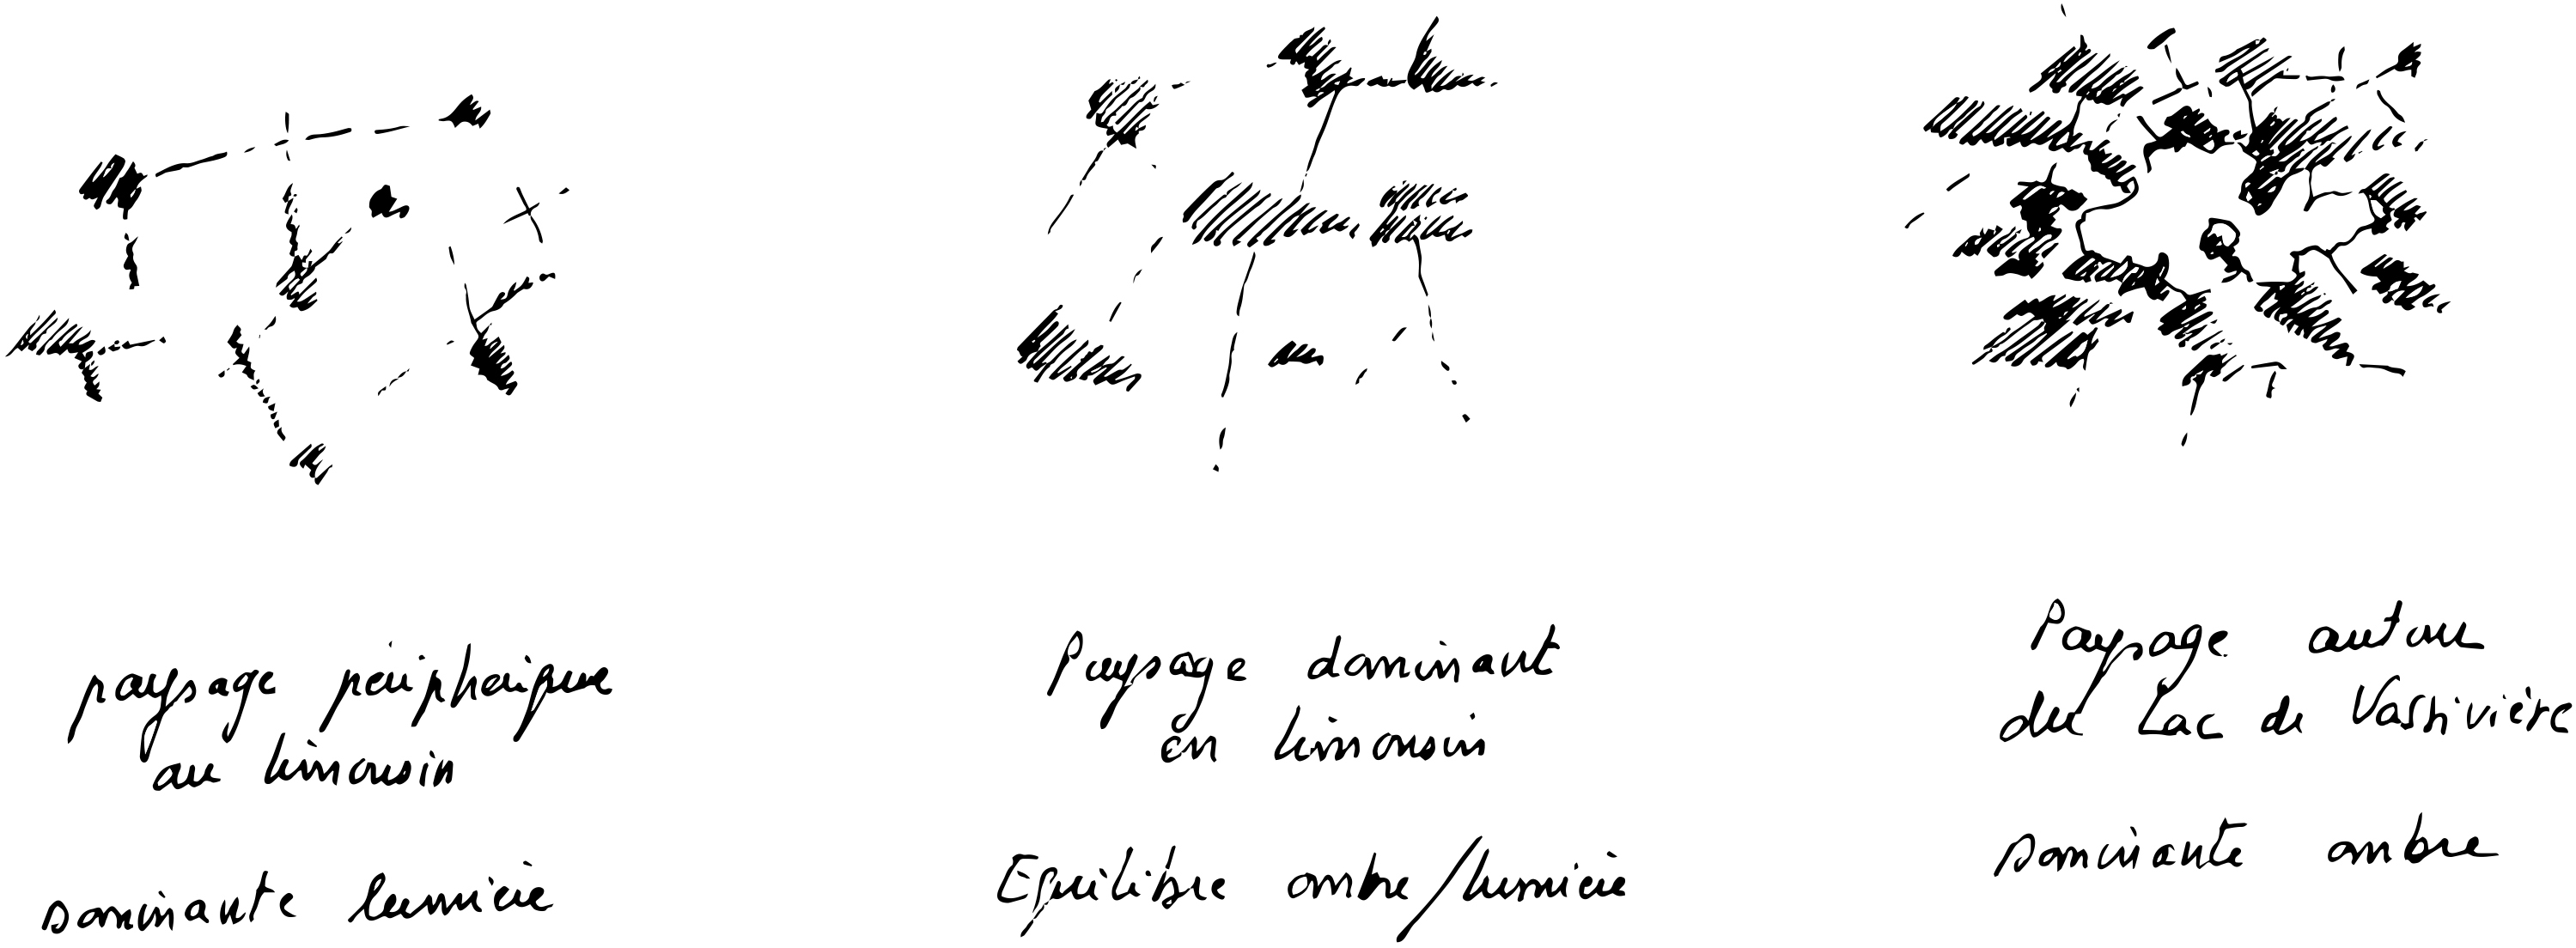 paysage périphérique
au limousin
dominante lumière
Paysage dominant
en limousin
Equilibre ombre/lumière
Paysage autour
du Lac de Vassivière
dominante ombre